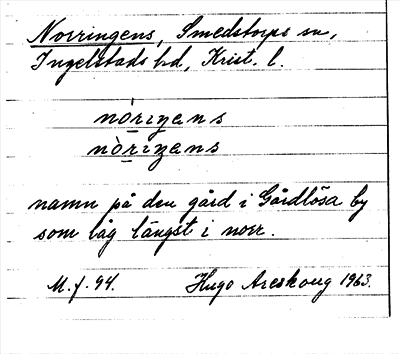 Norringens, Smedstorps sn,
Ingelstads hd, Krist. l.
nòriŋens
nòriŋens
namn på den gård i Gårdlösa by
som låg längst i norr.
M. f. 94. Hugo Areskoug 1963.